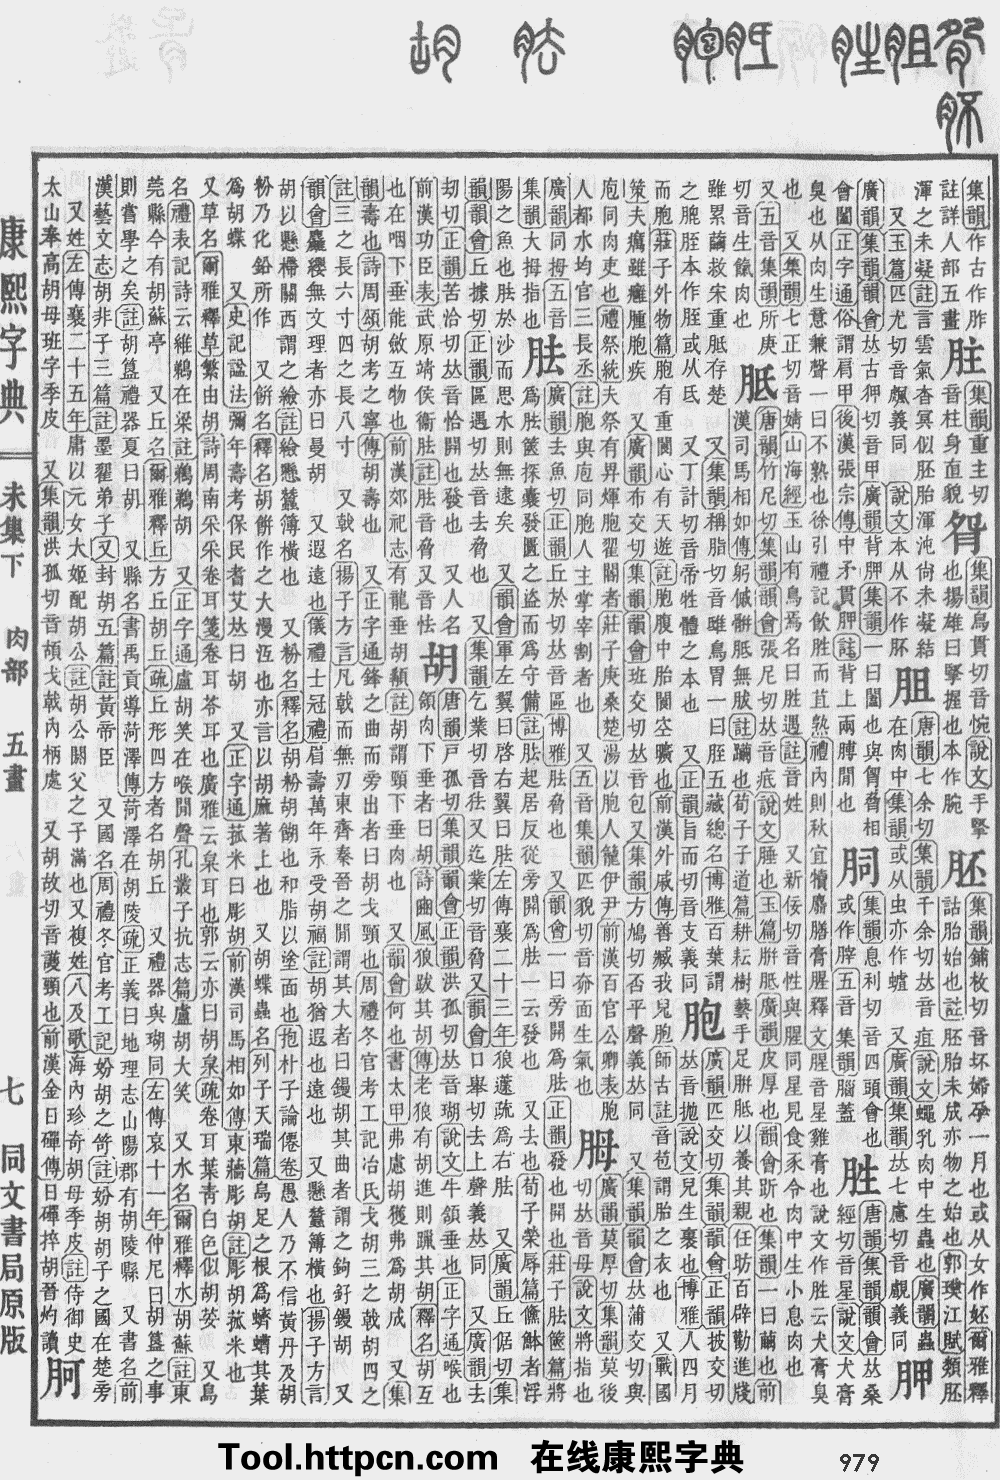 集韻作古作胙
註詳人部五畫
集韻重主切
音柱身直貌
集韻烏貫切音惋說文手擊
也揚雄曰擊握也本作腕
胚
集韻鋪枚切音坏婦孕一月也或从女作妚爾雅釋
詁胎始也註胚胎未成亦物之始也郭璞江賦類胚
渾之未凝註言雲氣杳冥似胚胎渾沌尙未凝結
又玉篇匹尤切音䬌義同 說文本从不作肧
胆
唐韻七余切集韻千余切𠀤音疽說文蠅乳肉中生蟲也廣韻蟲
在肉中集韻或从虫亦作蛆 又廣韻集韻𠀤七慮切音覰義同
胛
廣韻集韻韻會𠀤古狎切音甲廣韻背胛集韻一曰闔也與胷脅相
會闔正字通俗謂肩甲後漢張宗傳中矛貫胛註背上兩膊閒也
集韻息利切音四頭會也
或作䏝五音集韻腦蓋
胜
唐韻集韻韻會𠀤桑
經切音星說文犬膏
臭也从肉生意兼聲一曰不熟也徐引禮記飮胜而苴熟禮內則秋宜犢麛膳膏腥釋文腥音星雞膏也說文作胜云犬膏臭
也 又集韻七正切音婧山海經玉山有鳥焉名曰胜遇註音姓 又新佞切音性與腥同星見食豕令肉中生小息肉也
又五音集韻所庚
切音生餼肉也
胝
唐韻竹尼切集韻韻會張尼切𠀤音疷說文腄也玉篇胼胝廣韻皮厚也韻會趼也集韻一曰繭也前
漢司馬相如傳躬傶骿胝無胈註躪也荀子子道篇耕耘樹藝手足胼胝以養其親任昉百辟勸進牋
雖累繭救宋重胝存楚 又集韻稱脂切音雖鳥胃一曰胵五藏總名博雅百葉謂
之膍胵本作胵或从氐 又丁計切音帝牲體之本也 又正韻旨而切音支義同
胞
廣韻匹交切集韻韻會正韻披交切
𠀤音抛說文兒生裹也博雅人四月
而胞莊子外物篇胞有重閬心有天遊註胞腹中胎閬空曠也前漢外戚傳善臧我兒胞師古註音苞謂胎之衣也 又戰國
策夫癘雖癰腫胞疾 又廣韻布交切集韻韻會班交切𠀤音包又集韻方鳩切否平聲義𠀤同 又集韻韻會𠀤蒲交切與
庖同肉吏也禮祭統夫祭有畀煇胞翟閽者莊子庚桑楚湯以胞人籠伊尹前漢百官公卿表胞
人都水均官三長丞註胞與庖同胞人主掌宰割者也 又五音集韻匹貌切音奅面生氣也
胟
廣韻莫厚切集韻莫後
切𠀤音母說文將指也
廣韻同拇五音
集韻大拇指也
胠
廣韻去魚切正韻丘於切𠀤音區博雅胠脅也 又韻會一曰旁開爲胠正韻發也開也莊子胠篋篇將
爲胠篋探囊發匱之盜而爲守備註胠起居反從旁開爲胠一云發也 又荀子榮辱篇鯈䱁者浮
陽之魚也胠於沙而思水則無逮矣 又韻會軍左翼曰啓右翼曰胠左傳襄二十三年狼蘧疏爲右胠 又廣韻丘倨切集
韻韻會丘據切正韻區遇切𠀤音去脅也 又集韻乞業切音㹤又迄業切音脅又韻會口舉切去上聲義𠀤同 又廣韻去
刧切正韻苦洽切𠀤音恰開也發也 又人名
前漢功臣表武原靖侯衞胠註胠音脅又音怯
胡
唐韻戸孤切集韻韻會正韻洪孤切𠀤音瑚說文牛顄垂也正字通喉也
頷肉下垂者曰胡詩豳風狼跋其胡傳老狼有胡進則躐其胡釋名胡互
也在咽下垂能斂互物也前漢郊祀志有龍垂胡䫇註胡謂頸下垂肉也 又韻會何也書太甲弗慮胡獲弗爲胡成 又集
韻壽也詩周頌胡考之寧傳胡壽也 又正字通鋒之曲而旁出者曰胡戈頸也周禮冬官考工記冶氏戈胡三之戟胡四之
註三之長六寸四之長八寸 又戟名揚子方言凡戟而無刃東齊秦晉之閒謂其大者曰鏝胡其曲者謂之鉤釨鏝胡 又
韻會麤纓無文理者亦曰曼胡 又遐遠也儀禮士冠禮眉壽萬年永受胡福註胡猶遐也遠也 又懸蠶簿橫也揚子方言
胡以懸㯕關西謂之䋲註䋲懸蠶簿橫也 又粉名釋名胡粉胡餬也和脂以塗面也抱朴子論僊卷愚人乃不信黃丹及胡
粉乃化鉛所作 又餠名釋名胡餠作之大漫沍也亦言以胡麻著上也 又胡蝶蟲名列子天瑞篇烏足之根爲蠐螬其葉
爲胡蝶 又史記諡法彌年壽考保民耆艾𠀤曰胡 又正字通菰米曰彫胡前漢司馬相如傳東蘠彫胡註彫胡菰米也
又草名爾雅釋草蘩由胡詩周南采采卷耳箋卷耳苓耳也廣雅云枲耳也郭云亦曰胡枲疏卷耳葉靑白色似胡荽 又鳥
名禮表記詩云維鵜在梁註鵜鵜胡 又正字通盧胡笑在喉閒聲孔叢子抗志篇盧胡大笑 又水名爾雅釋水胡蘇註東
莞縣今有胡蘇亭 又丘名爾雅釋丘方丘胡丘疏丘形四方者名胡丘 又禮器與瑚同左傳哀十一年仲尼曰胡簋之事
則嘗學之矣註胡簋禮器夏曰胡 又縣名書禹貢導菏澤傳菏澤在胡陵疏正義曰地理志山陽郡有胡陵縣 又書名前
漢藝文志胡非子三篇註墨翟弟子又封胡五篇註黃帝臣 又國名周禮冬官考工記妢胡之笴註妢胡胡子之國在楚旁
又姓左傳襄二十五年庸以元女大姬配胡公註胡公閼父之子滿也又複姓八及歌海內珍奇胡母季皮註侍御史
太山奉高胡母班字季皮 又集韻洪孤切音頶戈戟內柄處 又胡故切音護頸也前漢金日磾傳日磾捽胡晉灼讀
康熙字典 未集下 肉部 五畫 七 同文書局原版
Tool.httpcn.com 在线康熙字典 979